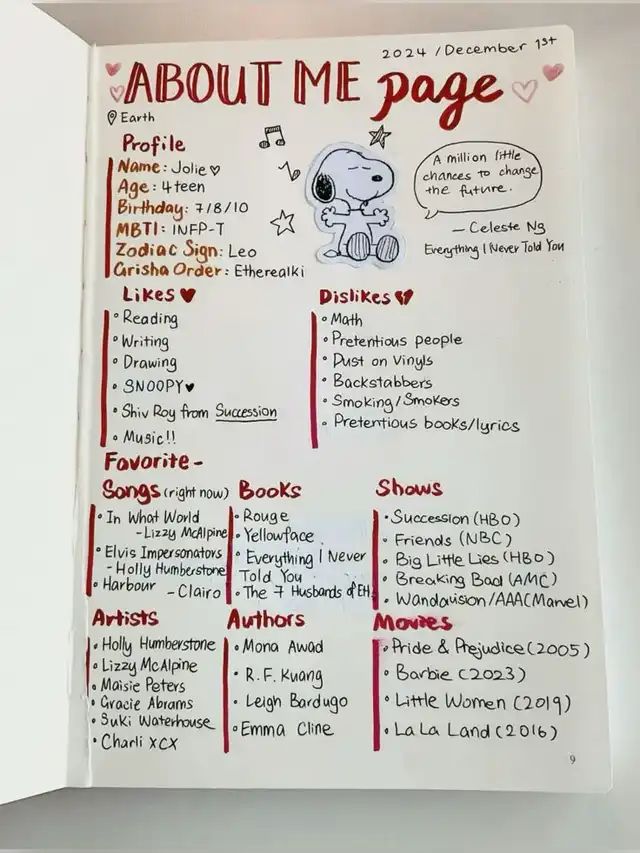 2024 / December 1st
ABOUT ME page
Earth
Profile
Name: Jolie
Age: 4teen
Birthday: 7/8/10
MBTI: INFP-T
Zodiac Sign: Leo
Grisha Order: Etherealki
A million little
chances to change
the future.
— Celeste Ng
Everything I Never Told You
Likes
• Reading
• Writing
• Drawing
• SNOOPY
• Shiv Roy from Succession
• Music!!
Dislikes
• Math
• Pretentious people
• Dust on Vinyls
• Backstabbers
• Smoking/Smokers
• Pretentious books/lyrics
Favorite-
Songs (right now)
• In What World
- Lizzy McAlpine
• Elvis Impersonators
- Holly Humberstone
• Harbour
- Clairo
Books
• Rouge
• Yellowface
• Everything I Never
Told You
• The 7 Husbands of EH
Shows
• Succession (HBO)
• Friends (NBC)
• Big Little Lies (HBO)
• Breaking Bad (AMC)
• Wandavision/AAA (Marvel)
Artists
• Holly Humberstone
• Lizzy McAlpine
• Maisie Peters
• Gracie Abrams
• Suki Waterhouse
• Charli xcx
Authors
• Mona Awad
• R.F. Kuang
• Leigh Bardugo
• Emma Cline
Movies
• Pride & Prejudice (2005)
• Barbie (2023)
• Little Women (2019)
• La La Land (2016)
9